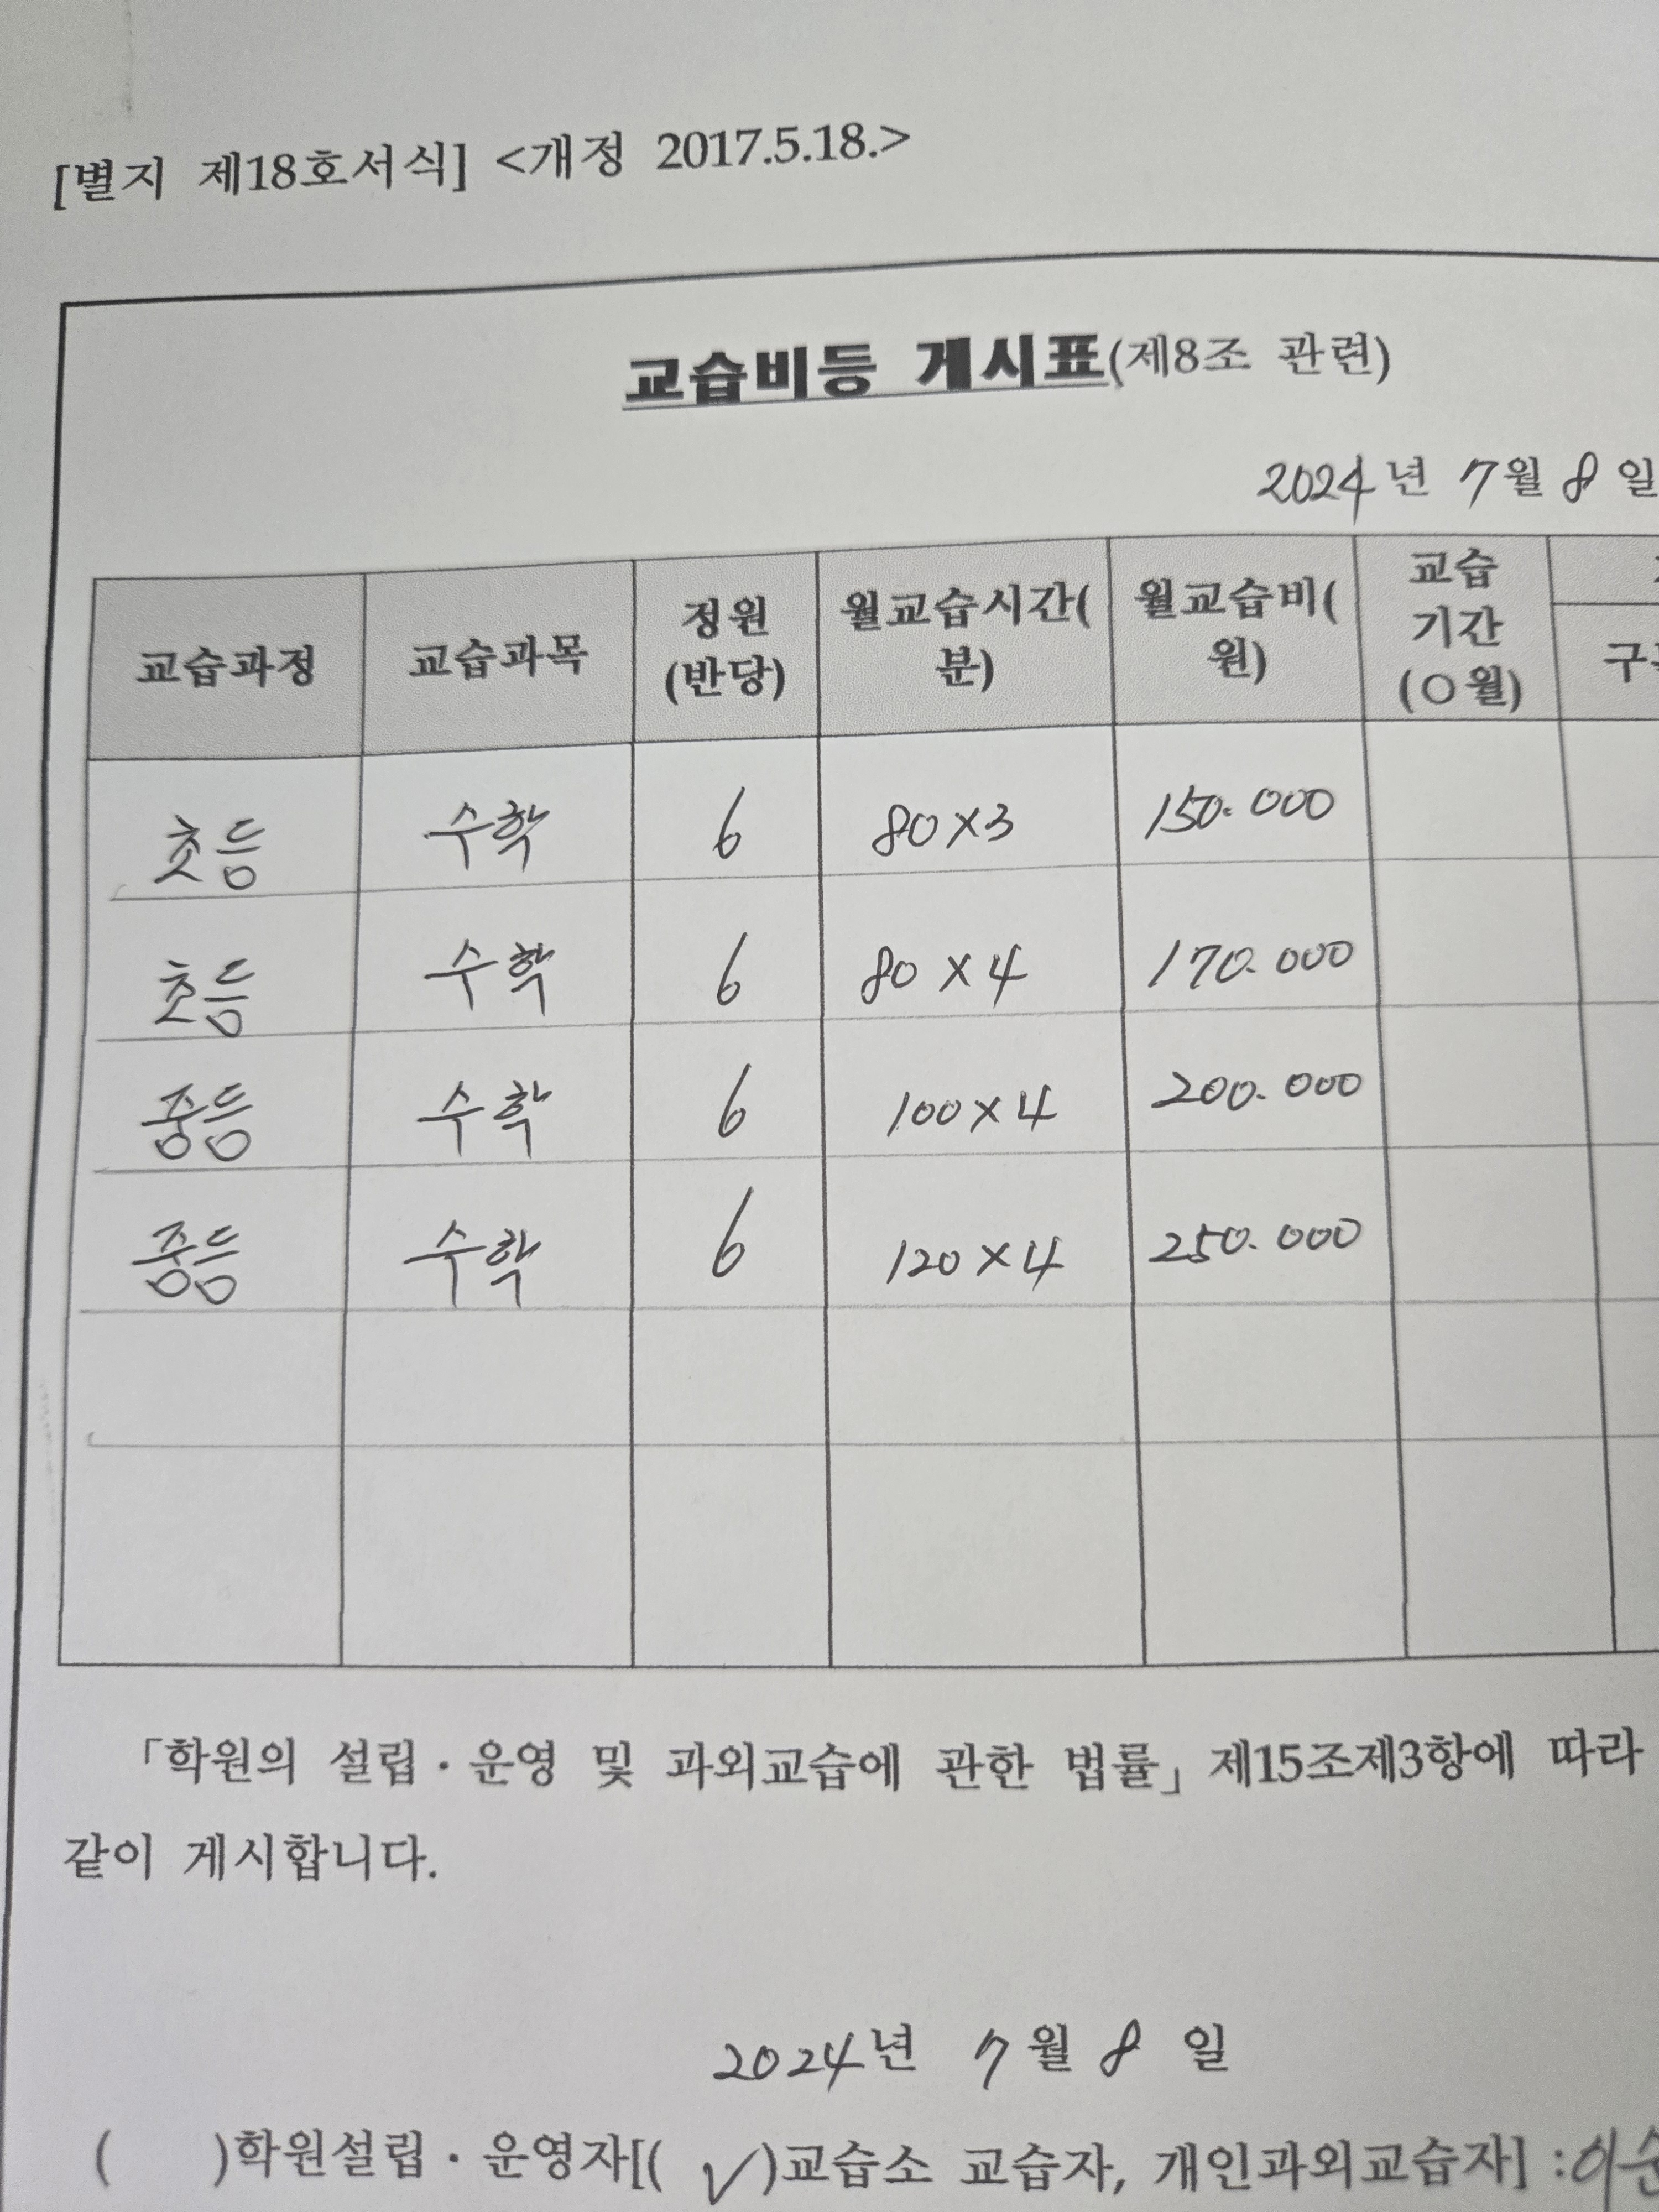 [별지 제18호서식] <개정 2017.5.18.>
교습비등 게시표(제8조 관련)
2024년 7월 8일
교습과정 교습과목 정원(반당) 월교습시간(분) 월교습비(원) 교습기간(○월)
초등 수학 6 80×3 150.000
초등 수학 6 80×4 170.000
중등 수학 6 100×4 200.000
중등 수학 6 120×4 250.000
「학원의 설립·운영 및 과외교습에 관한 법률」제15조제3항에 따라
같이 게시합니다.
2024년 7월 8일
( )학원설립·운영자[( ✓)교습소 교습자, 개인과외교습자] :이순